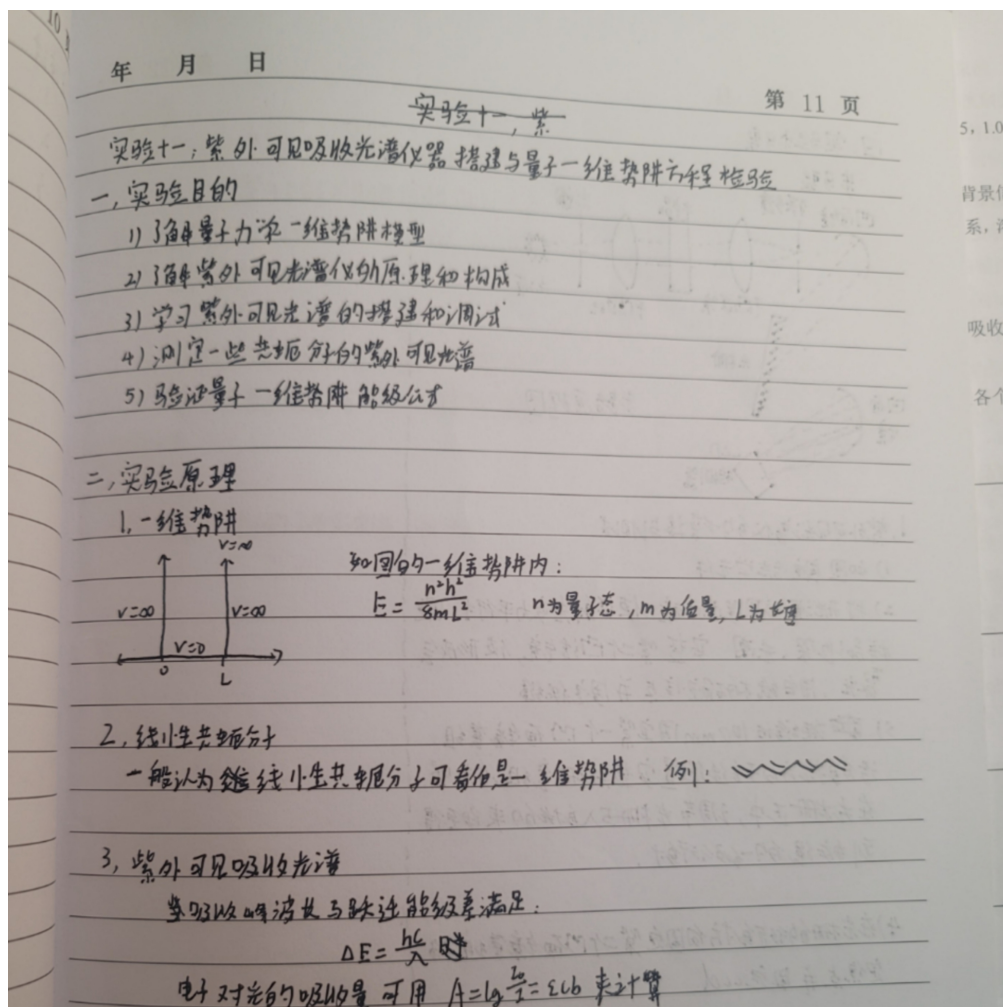 年 月 日
第 11 页
实验十一,紫
实验十一:紫外可见吸收光谱仪器搭建与量子一维势阱方程检验
一,实验目的
1)了解量子力学一维势阱模型
2)了解紫外可见光谱仪的原理和构成
3)学习紫外可见光谱的搭建和调试
4)测定一些共轭分子的紫外可见光谱
5)验证量子一维势阱能级公式
二,实验原理
1,一维势阱
V=∞
V=∞ V=∞
V=0
0 L
如图的一维势阱内:
E = n²h²/8mL² n为量子态,m为质量,L为长度
2,线性共轭分子
一般认为线性共轭分子可看作是一维势阱 例:
3,紫外可见吸收光谱
吸收峰波长与跃迁能级差满足:
ΔE = hc/λ
电子对光的吸收量可用 A=lg I₀/I = εcb 来计算
5,1.0
背景
系,
吸收
各个